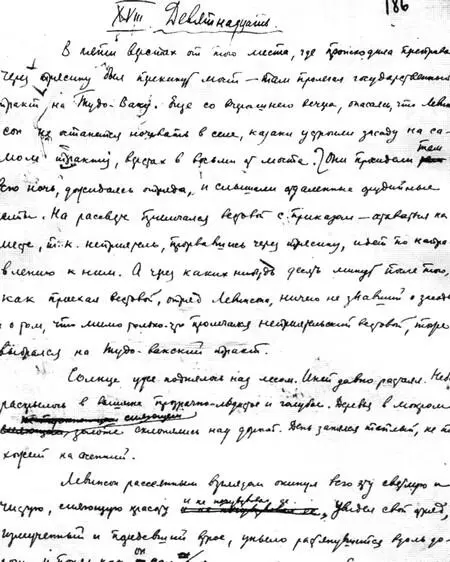 186
XVIII Девятнадцать
В пяти верстах от того места, где происходила переправа
через трясину был перекинут мост — там пролегал государственный
тракт на Тудо-Ваку. Еще со вчерашнего вечера, опасаясь, что Левин-
сон не останется ночевать в селе, казаки устроили засаду на са-
мом тракту, верстах в восьми от моста. Они просидели там
всю ночь, дожидаясь отряда, и слышали отдаленные орудийные
залпы. На рассвете примчался вестовой с приказом — остаться на
месте, т.к. неприятель, прорвавшись через трясину, идет по напра-
влению к ним. А через каких-нибудь десять минут после того,
как проехал вестовой, отряд Левинсона, ничего не знавший о засаде
и о том, что мимо только-что промчался неприятельский вестовой, тоже
выбрался на Тудо-Вакский тракт.
Солнце уже поднялось над лесом. Иней давно растаял. Небо
раскрылось в вышине прозрачно-льдистое и голубое. Деревья в мокром
сияющем
золоте склонялись над дорогой. День занялся теплый, не по-
хожий на осенний.
Левинсон рассеянным взглядом окинул всю эту светлую и
чистую, сияющую красоту и не почувствовал ее. Увидел свой отряд,
измученный и поредевший втрое, уныло растянувшийся вдоль до-
роги, и понял как он